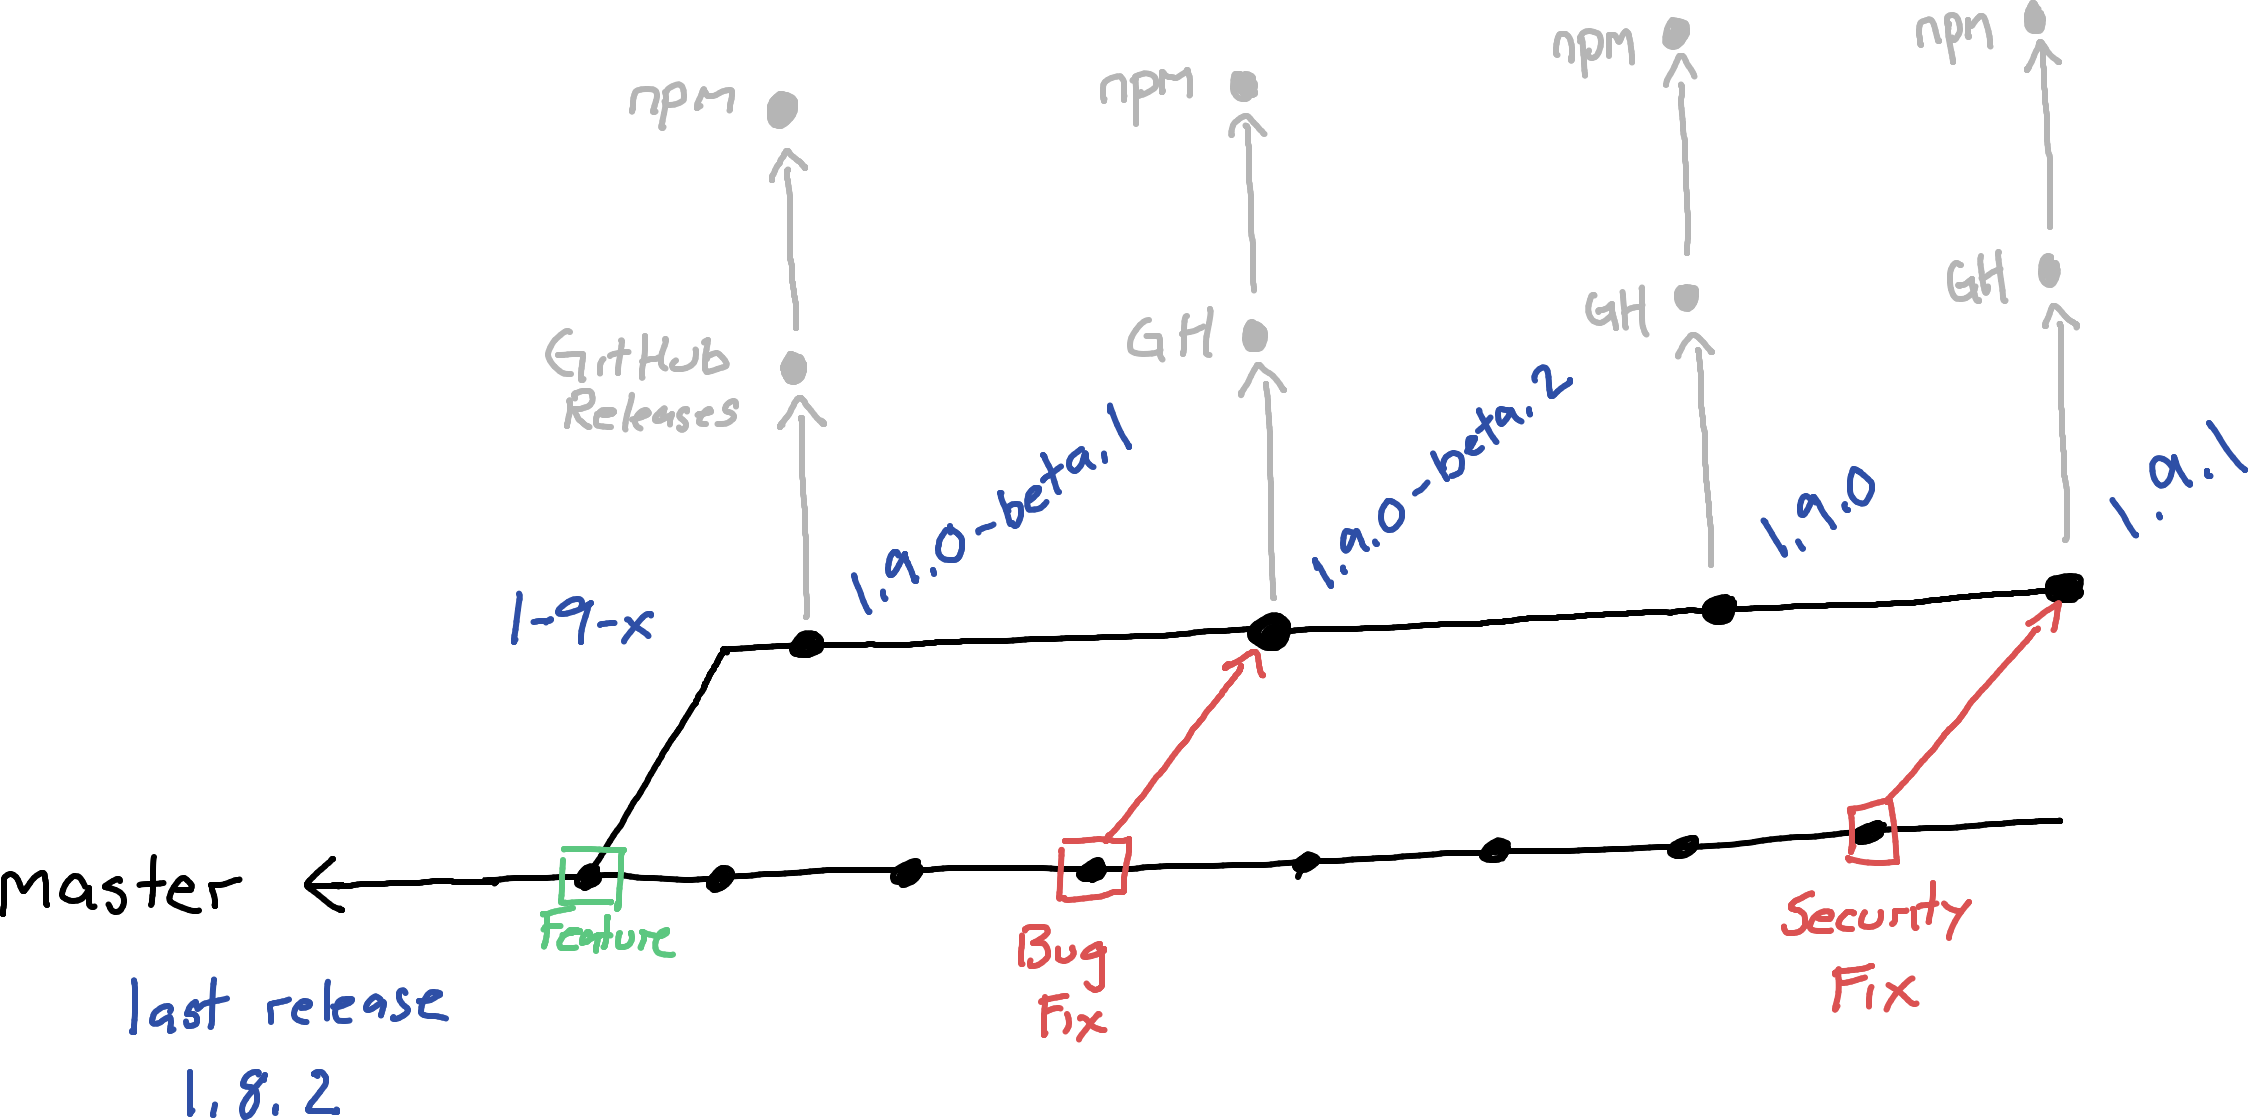 npm
npm
npm
npm
GitHub
Releases
GH
GH
GH
1.9.0-beta.1
1.9.0-beta.2
1.9.0
1.9.1
1-9-x
master
Feature
Bug
Fix
Security
Fix
last release
1.8.2